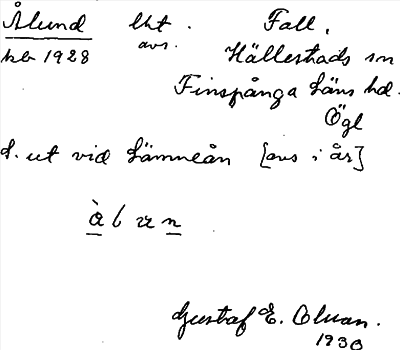 Ålund lht. Fall.
kb 1928 avs. Hällestads sn
Finspånga läns hd.
Ögl
l. ut vid Lämneån [avs i år]
Gustaf E. Olsson.
1930